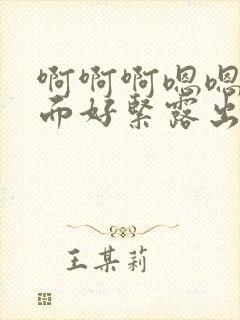 啊啊啊嗯嗯
而好緊露出
王某莉